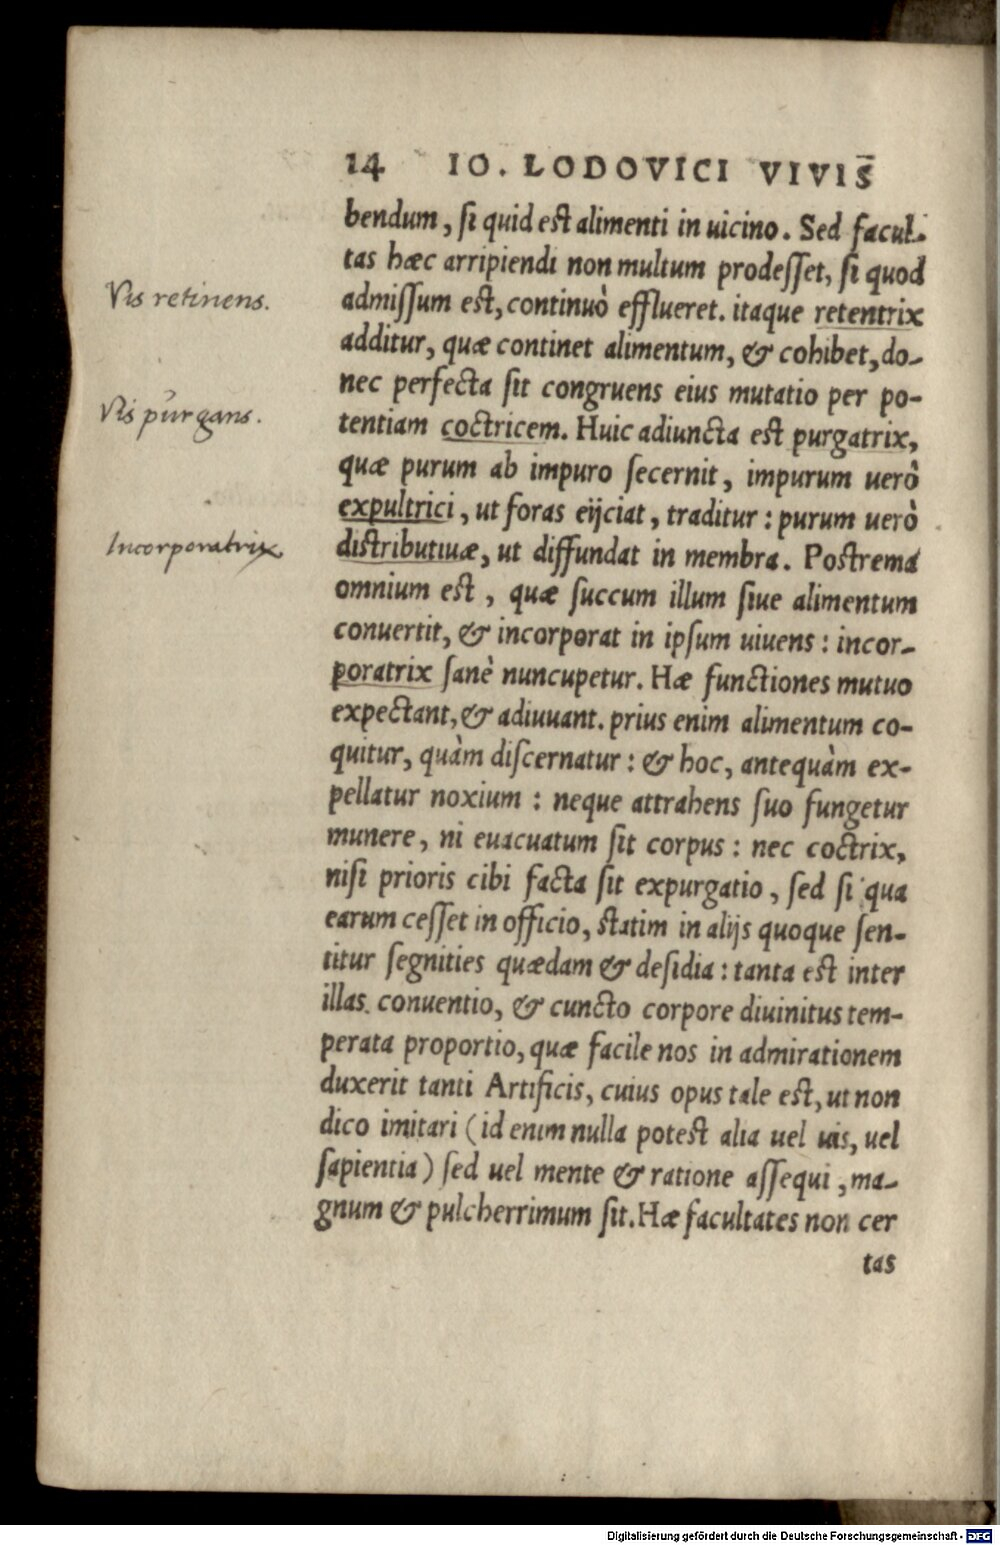 14 IO. LODOVICI VIVIS
bendum, ſi quid eſt alimenti in uicino. Sed facul-
tas hæc arripiendi non multum prodeſſet, ſi quod
admiſſum eſt, continuò efflueret. itaque retentrix
additur, quæ continet alimentum, & cohibet, do-
nec perfecta ſit congruens eius mutatio per po-
tentiam coctricem. Huic adiuncta eſt purgatrix,
quæ purum ab impuro ſecernit, impurum uerò
expultrici, ut foras eijciat, traditur: purum uerò
diſtributiuæ, ut diffundat in membra. Poſtrema
omnium eſt, quæ ſuccum illum ſiue alimentum
conuertit, & incorporat in ipſum uiuens: incor-
poratrix ſanè nuncupetur. Hæ functiones mutuo
expectant, & adiuuant. prius enim alimentum co-
quitur, quàm diſcernatur: & hoc, antequàm ex-
pellatur noxium: neque attrahens ſuo fungetur
munere, ni euacuatum ſit corpus: nec coctrix,
niſi prioris cibi facta ſit expurgatio, ſed ſi qua
earum ceſſet in officio, ſtatim in alijs quoque ſen-
titur ſegnities quædam & deſidia: tanta eſt inter
illas conuentio, & cuncto corpore diuinitus tem-
perata proportio, quæ facile nos in admirationem
duxerit tanti Artificis, cuius opus tale eſt, ut non
dico imitari (id enim nulla poteſt alia uel uis, uel
ſapientia) ſed uel mente & ratione aſſequi, ma-
gnum & pulcherrimum ſit. Hæ facultates non cer
tas
Vis retinens.
Vis purgans.
Incorporatrix
Digitalisierung gefördert durch die Deutsche Forschungsgemeinschaft - DFG